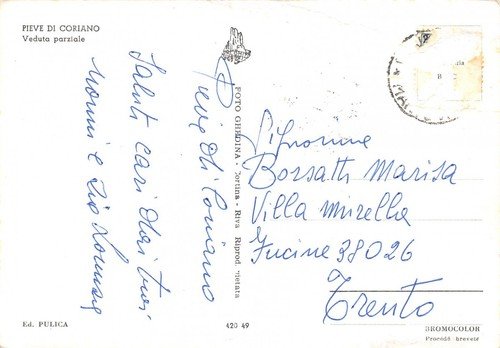 PIEVE DI CORIANO
Veduta parziale
Pieve di Coriano
Saluti cari dai tuoi
nonni e zio
FOTO GHEDINA - Cortina - Ripr. Riprod. vietata
Signorina
Borsatti Marisa
Villa Mirella
Fucine 38026
Trento
Ed. PULICA
420 49
BROMOCOLOR
Procédé breveté